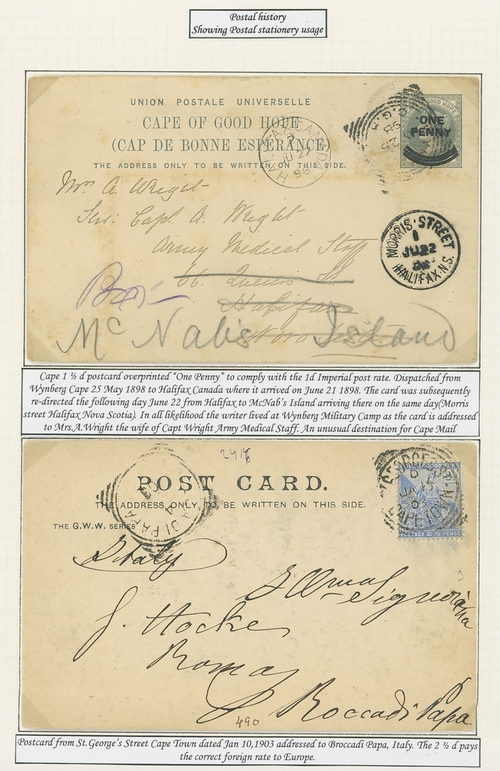 Postal history
Showing Postal stationery usage
UNION POSTALE UNIVERSELLE
CAPE OF GOOD HOPE
(CAP DE BONNE ESPÉRANCE)
THE ADDRESS ONLY TO BE WRITTEN ON THIS SIDE.
ONE
PENNY
Mrs A. Wright
Capt. A. Wright
Army Medical Staff
66. Queen St
Halifax
Mc Nabs Island
MORRIS-STREET
1
JU 22
98
HALIFAX N.S.
Cape 1 ½ d postcard overprinted "One Penny" to comply with the 1d Imperial post rate. Dispatched from
Wynberg Cape 25 May 1898 to Halifax Canada where it arrived on June 21 1898. The card was subsequently
re-directed the following day June 22 from Halifax to McNab's Island arriving there on the same day(Morris
street Halifax Nova Scotia). In all likelihood the writer lived at Wynberg Military Camp as the card is addressed
to Mrs.A.Wright the wife of Capt Wright Army Medical Staff. An unusual destination for Cape Mail
POST CARD.
THE ADDRESS ONLY TO BE WRITTEN ON THIS SIDE.
THE G.W.W. SERIES
Italy
J. Hocke
Roma
Roccadi Papa
490
Postcard from St.George's Street Cape Town dated Jan 10,1903 addressed to Broccadi Papa, Italy. The 2 ½ d pays
the correct foreign rate to Europe.